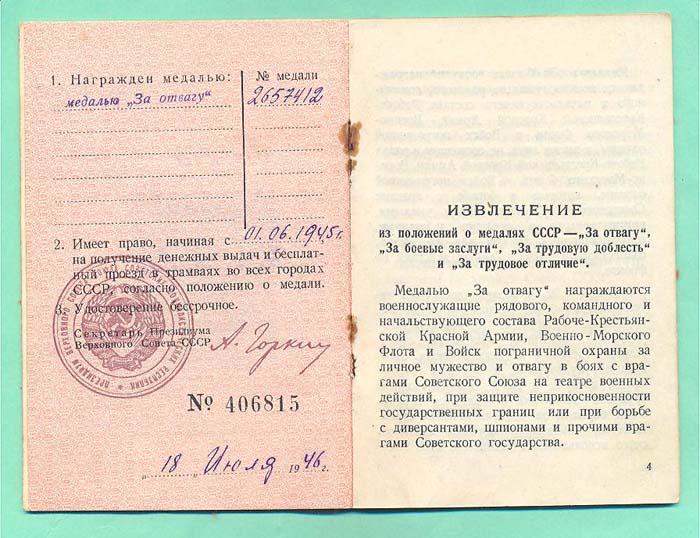 1. Награжден медалью:
№ медали
медалью „За отвагу“
2657412
2. Имеет право, начиная с 01.06.1945г.
на получение денежных выдач и бесплат-
ный проезд в трамваях во всех городах
СССР, согласно положению о медали.
3. Удостоверение бессрочное.
Секретарь Президиума
Верховного Совета СССР
А. Горкин
№ 406815
„18 Июля 1946 г.
ИЗВЛЕЧЕНИЕ
из положений о медалях СССР—„За отвагу“,
„За боевые заслуги“, „За трудовую доблесть“
и „За трудовое отличие“.
Медалью „За отвагу“ награждаются
военнослужащие рядового, командного и
начальствующего состава Рабоче-Крестьян-
ской Красной Армии, Военно-Морского
Флота и Войск пограничной охраны за
личное мужество и отвагу в боях с вра-
гами Советского Союза на театре военных
действий, при защите неприкосновенности
государственных границ или при борьбе
с диверсантами, шпионами и прочими вра-
гами Советского государства.
4